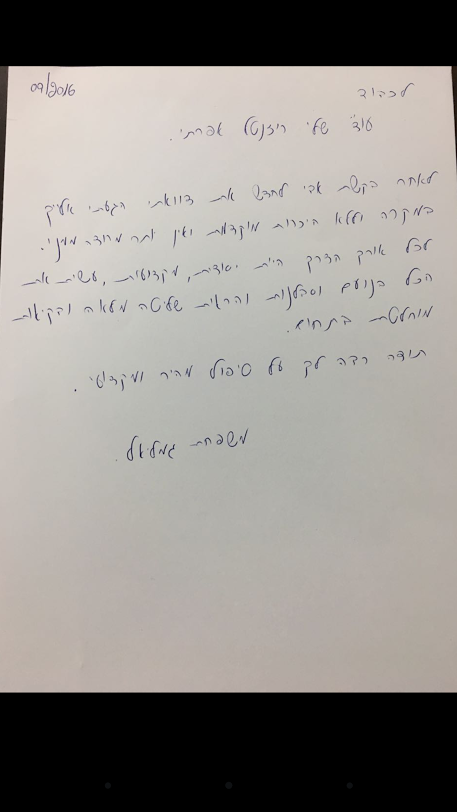 09/2016
לכבוד
עו"ד שלי רוזנטל אפרתי.
לאחר בקשת אבי לחדש את צוואתי הגעתי אלייך
במקרה וללא היכרות מוקדמת ואין יותר מרוצה ממני.
לכל אורך הדרך היית יסודית, מקצועית, עשית את
הכל בנועם וסבלנות והראית שליטה מלאה ובקיאות
מוחלטת בתחום.
תודה רבה לך על טיפול מהיר ומקצועי.
משפחת גמליאל.